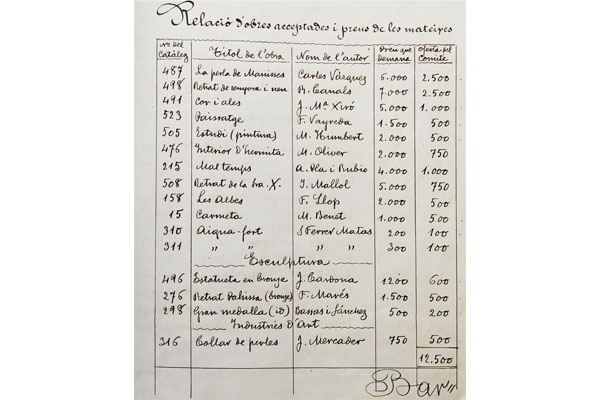 Relació d'obres acceptades i preus de les mateixes
Nº del Catàleg Títol de l'obra Nom de l'autor Preu que demana oferta del Comite
487 La perla de Manisses Carles Vázquez 6.000 2.500
498 Retrat de senyora i nen R. Canals 7.000 2.500
491 Cor i ales J. Mª Xiró 5.000 1.000
523 Paissatge F. Vayreda 1.500 500
505 Estudi (pintura) M. Humbert 2.000 500
476 Interior d'hermita M. Oliver 2.000 750
215 Mal temps A. Pla i Rubio 4.000 1.000
508 Retrat de la Sra. X. I. Mallol 5.000 750
158 Les Albes F. Llop 2.000 500
15 Carmeta M. Benet 1.000 500
310 Aigua-fort S Ferrer Matas 200 100
311 " " " " 300 100
Esculptura
496 Estatueta en bronze J. Cardona 1.200 600
276 Retrat (bronze) F. Marés 1.500 500
298 Gran medalla (id) Bassas i Sánchez 500 200
Industries d'Art
316 Collar de perles J. Mercader 750 500
12.500